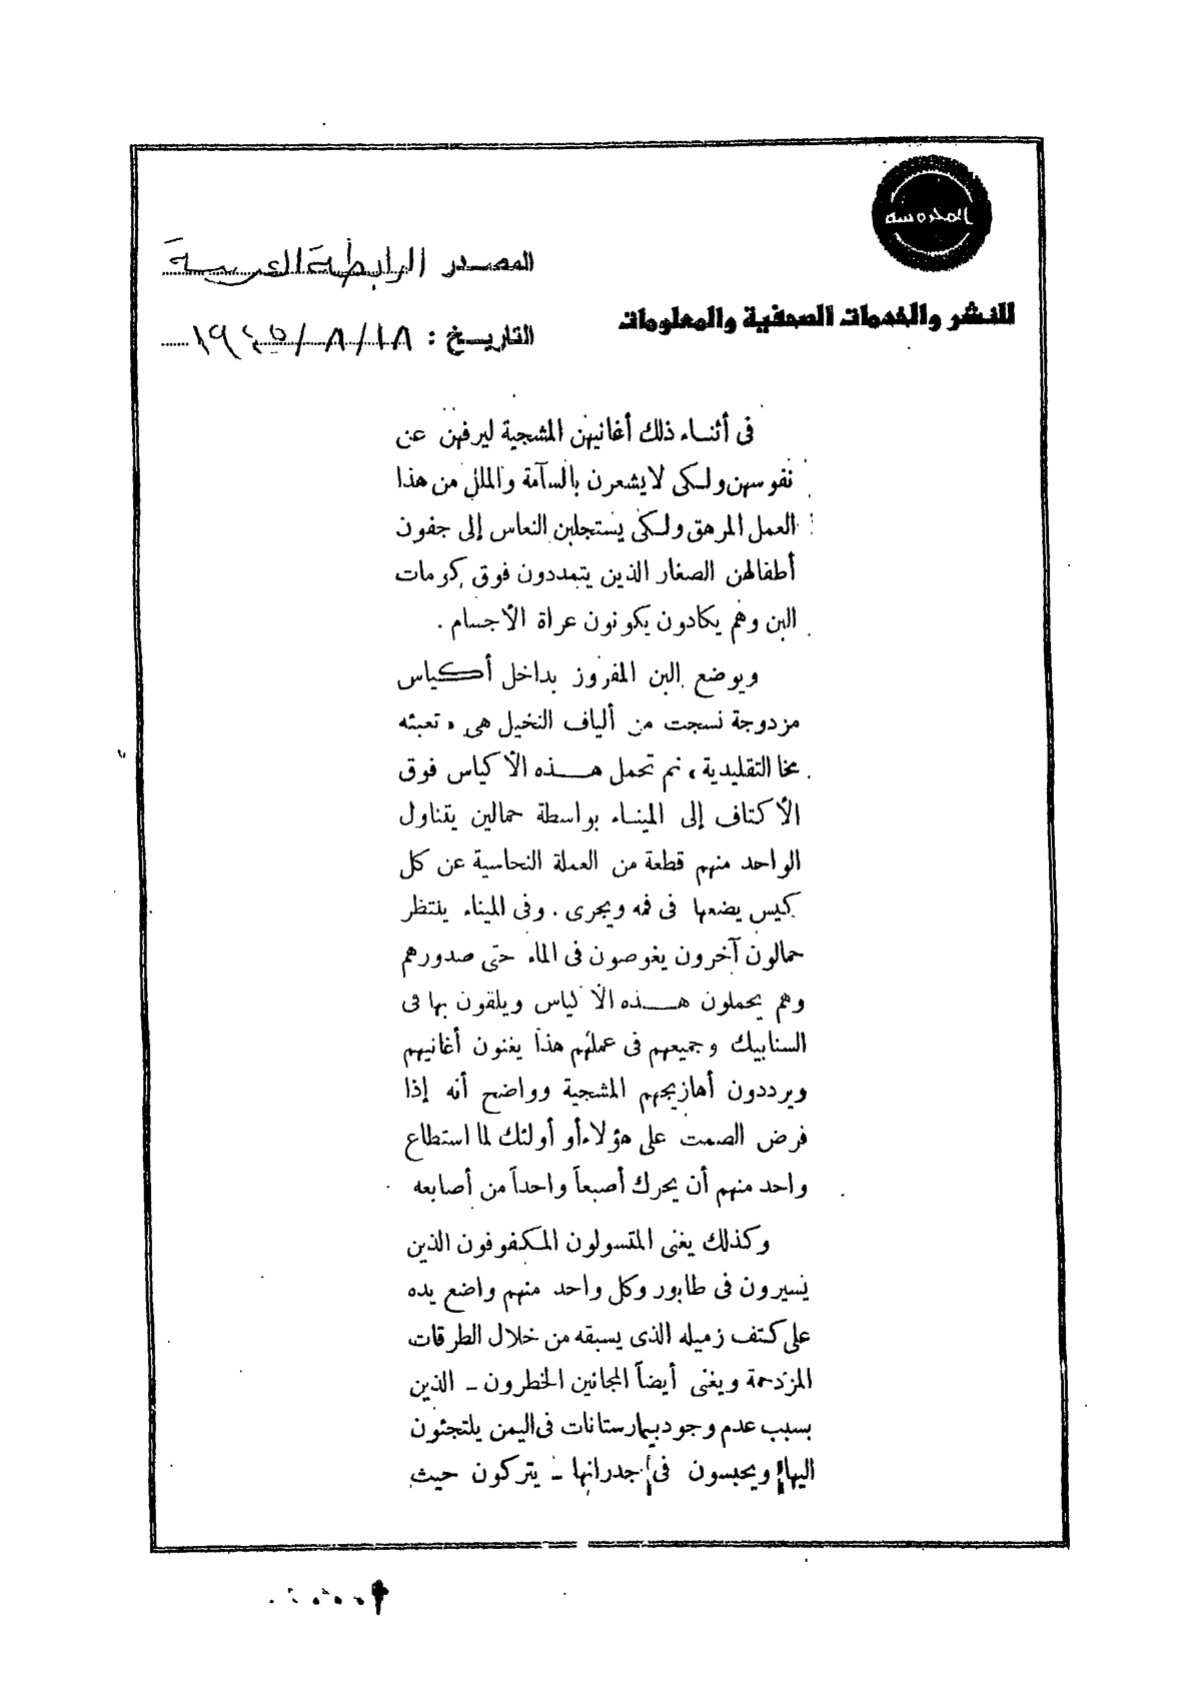 المحروسة
المصدر الرابطة العربية
للنشر والخدمات الصحفية والمعلومات
التاريخ : ١٨/٨/١٩٤٥
فى أثناء ذلك أغانيهن المشجية ليرفهن عن
نفوسهن ولكى لا يشعرن بالسآمة والملل من هذا
العمل المرهق ولكى يستجلبن النعاس إلى جفون
أطفالهن الصغار الذين يتمددون فوق كومات
البن وهم يكادون يكونون عراة الأجسام .
ويوضع البن المفروز بداخل أكياس
مزدوجة نسجت من ألياف النخيل هى « تعبئه
مخا التقليدية ، ثم تحمل هذه الأكياس فوق
الأكتاف إلى الميناء بواسطة حمالين يتناول
الواحد منهم قطعة من العملة النحاسية عن كل
كيس يضعها فى فمه ويجرى . وفى الميناء ينتظر
حمالون آخرون يغوصون فى الماء حتى صدورهم
وهم يحملون هذه الأكياس ويلقون بها فى
السنابيك وجميعهم فى عملهم هذا يغنون أغانيهم
ويرددون أهازيجهم المشجية وواضح أنه إذا
فرض الصمت على هؤلاء أو أولئك لما استطاع
واحد منهم أن يحرك أصبعاً واحداً من أصابعه
وكذلك يغنى المتسولون المكفوفون الذين
يسيرون فى طابور وكل واحد منهم واضع يده
على كتف زميله الذى يسبقه من خلال الطرقات
المزدحمة ويغنى أيضاً المجانين الخطرون – الذين
بسبب عدم وجود بيمارستانات فى اليمن يلتجئون
اليها ويحبسون فى جدرانها – يتركون حيث